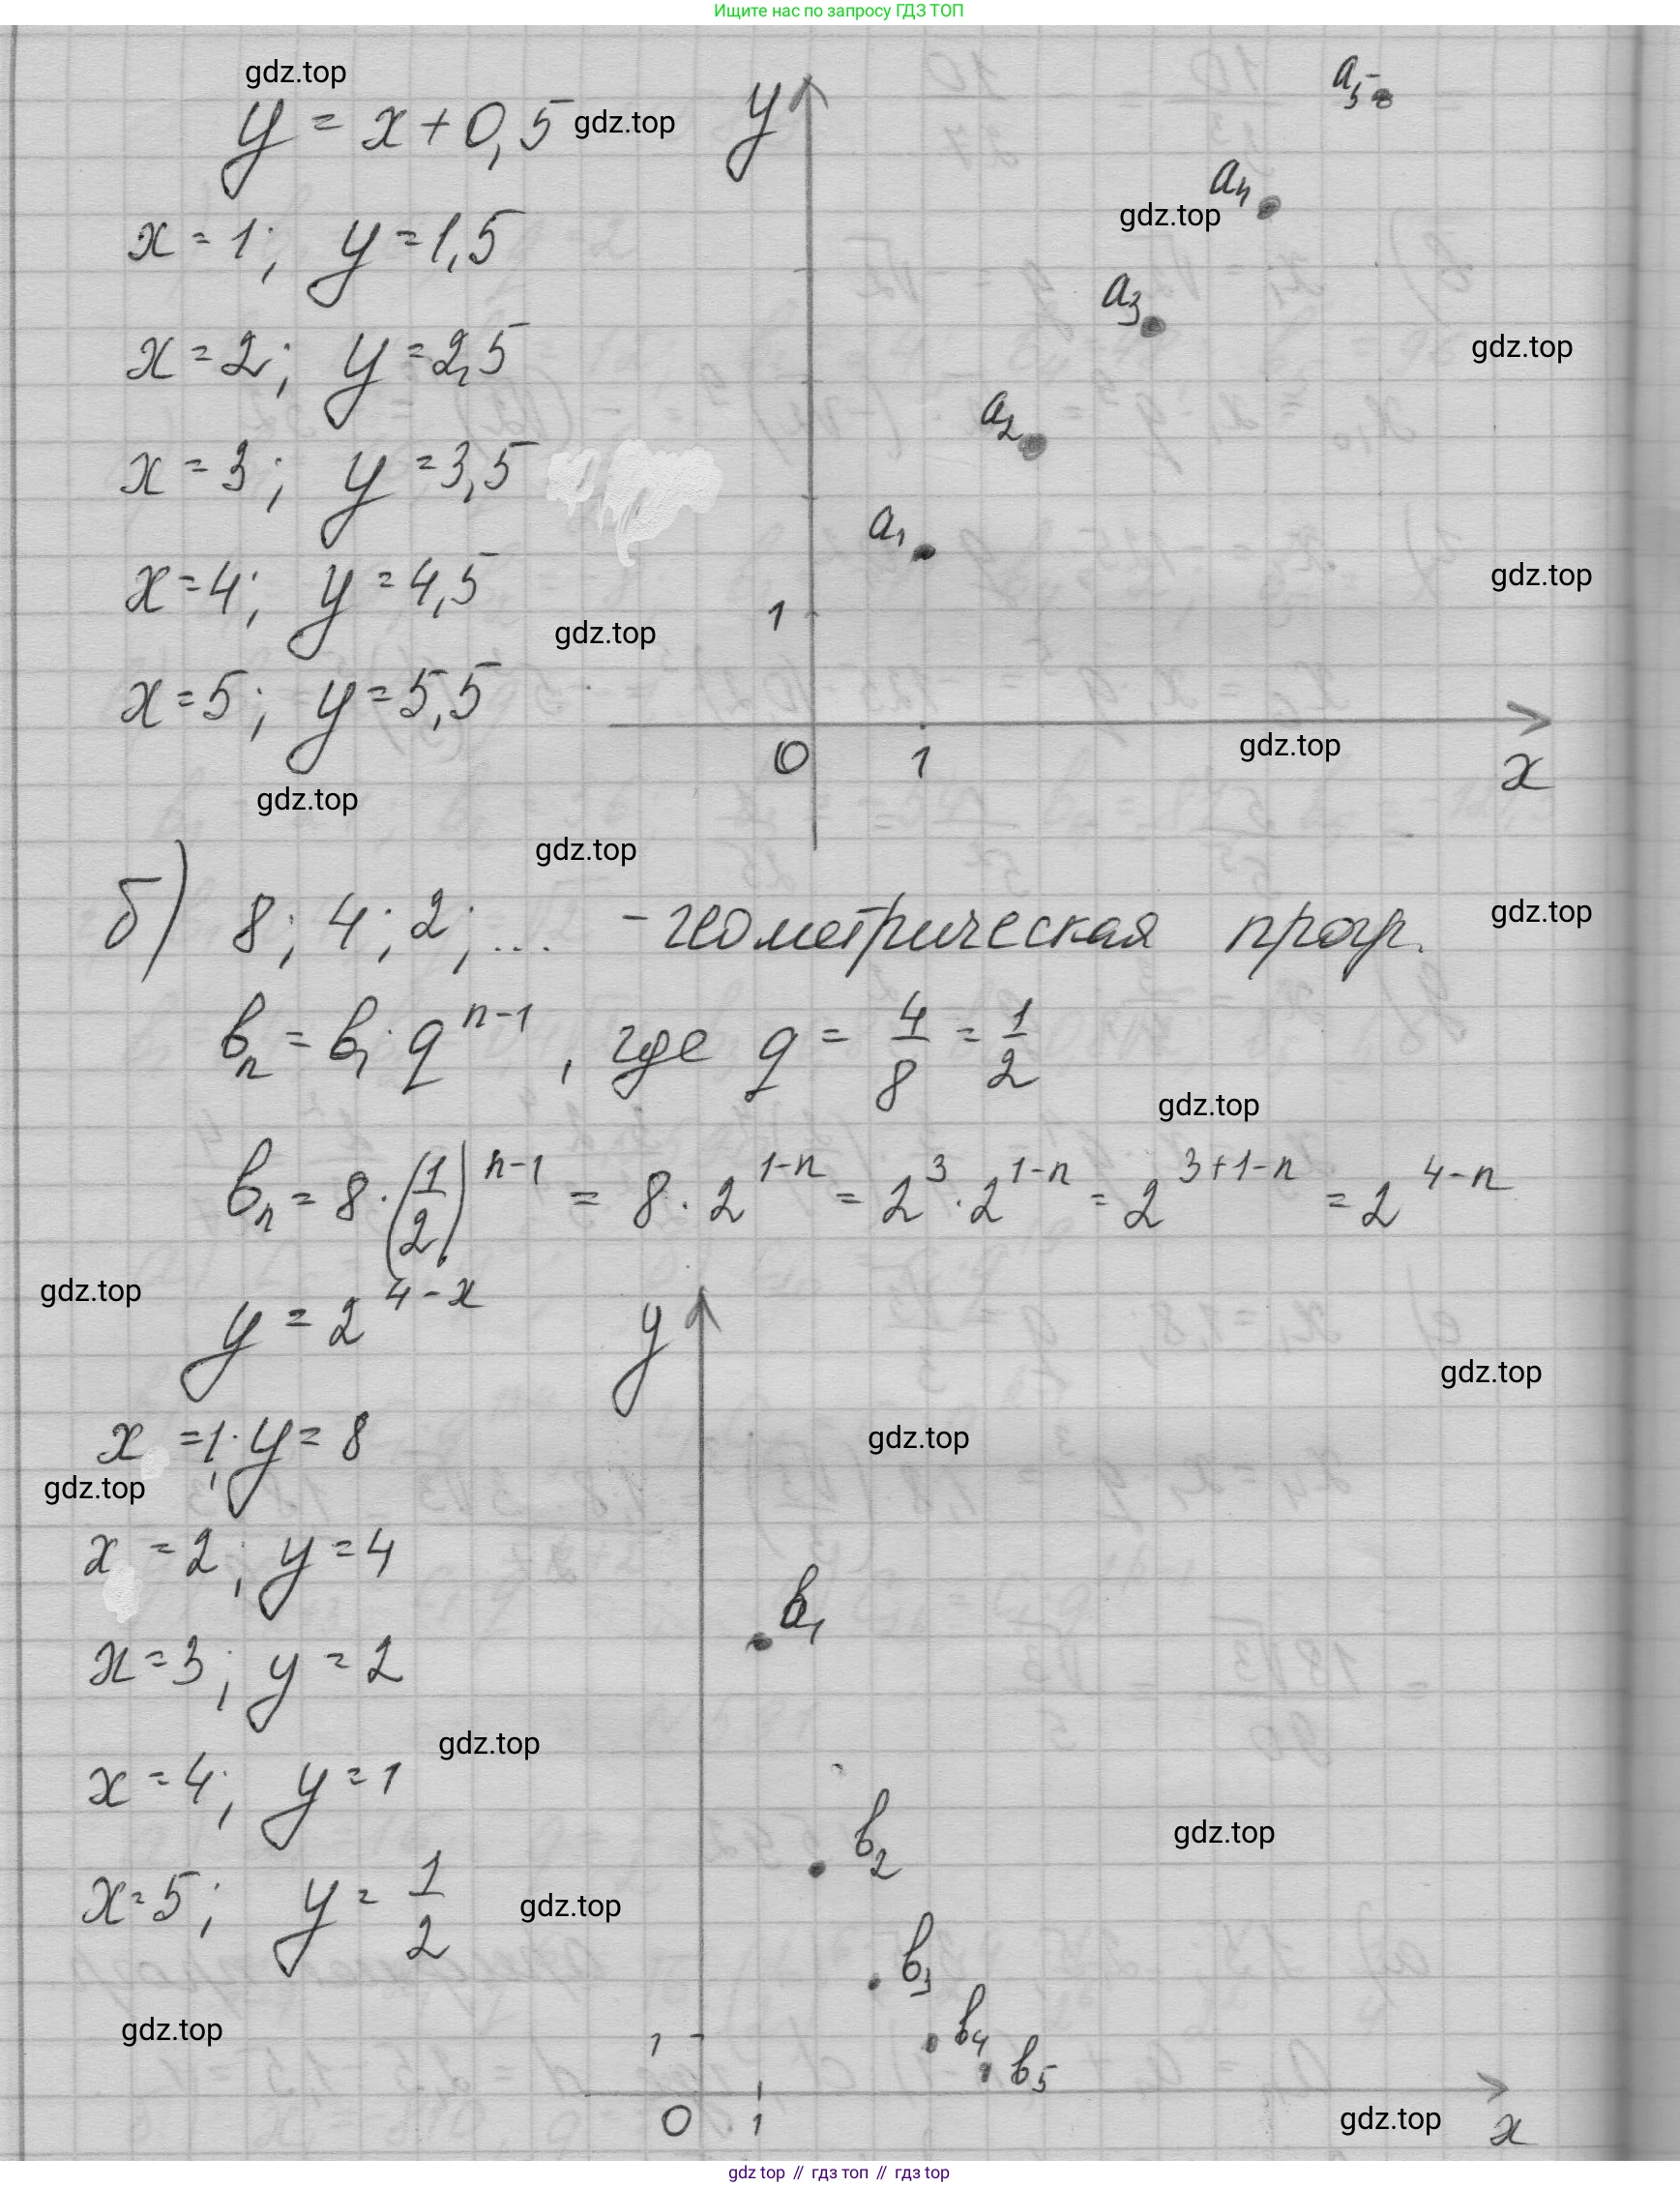 Ищите нас по запросу ГДЗ ТОП
gdz.top
y = x + 0,5 gdz.top
x = 1; y = 1,5
x = 2; y = 2,5
x = 3; y = 3,5
x = 4; y = 4,5
x = 5; y = 5,5
gdz.top
y
a5
a4
gdz.top
a3
gdz.top
a2
a1
gdz.top
1
gdz.top
0 1 gdz.top x
gdz.top
б) 8; 4; 2; ... - геометрическая прогр. gdz.top
bn = b1 · q^(n-1), где q = 4/8 = 1/2
gdz.top
bn = 8 · (1/2)^(n-1) = 8 · 2^(1-n) = 2^3 · 2^(1-n) = 2^(3+1-n) = 2^(4-n)
gdz.top
y = 2^(4-x)
x = 1; y = 8
gdz.top
x = 2; y = 4
x = 3; y = 2
gdz.top
x = 4; y = 1
x = 5; y = 1/2
gdz.top
gdz.top
y
gdz.top
gdz.top
b1
b2
gdz.top
b3
b4
b5
1
0 1 gdz.top x
gdz top // гдз топ // гдз top